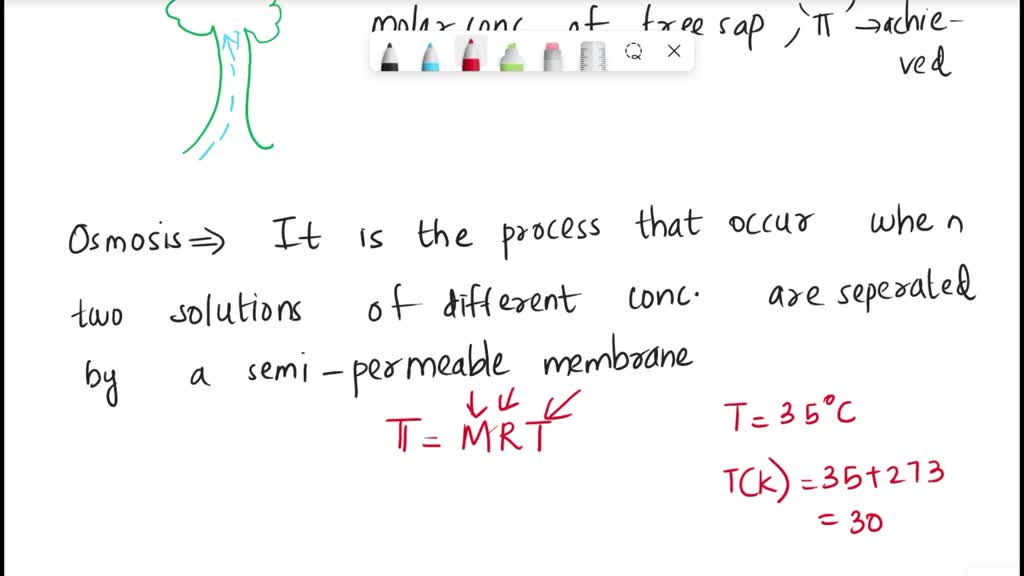 molar conc of tree sap, 'π' → achie-
ved
Osmosis ⇒ It is the process that occur when
two solutions of different conc. are seperated
by a semi-permeable membrane
π = MRT
T = 35°C
T(K) = 35+273
= 30